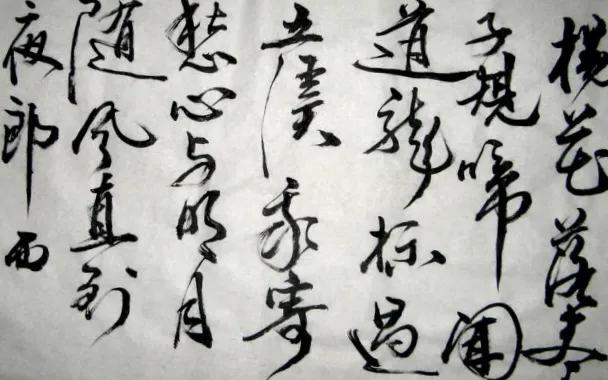 楊花落尽
子規啼聞
道龍标過
五溪我寄
愁心与明月
随风直到
夜郎西